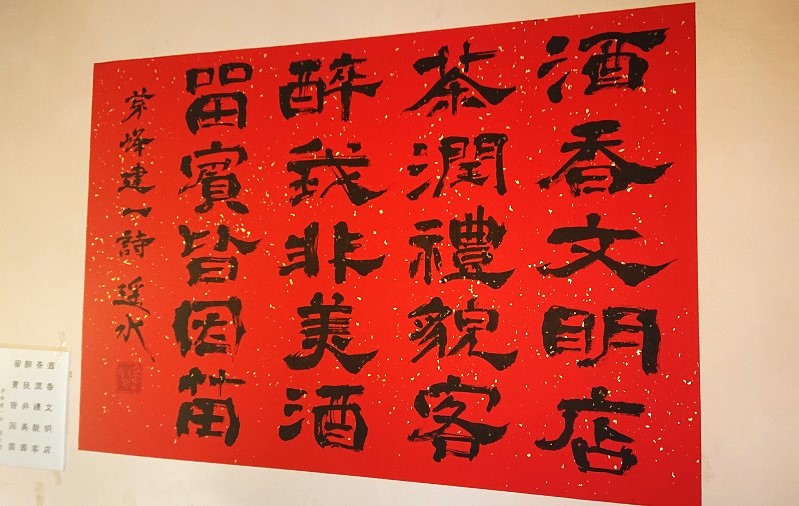 酒香文明店
茶潤禮貌客
醉我非美酒
留賓皆因苗
峰建一詩 水
酒香文明店
茶潤禮貌客
醉我非美酒
留賓皆因